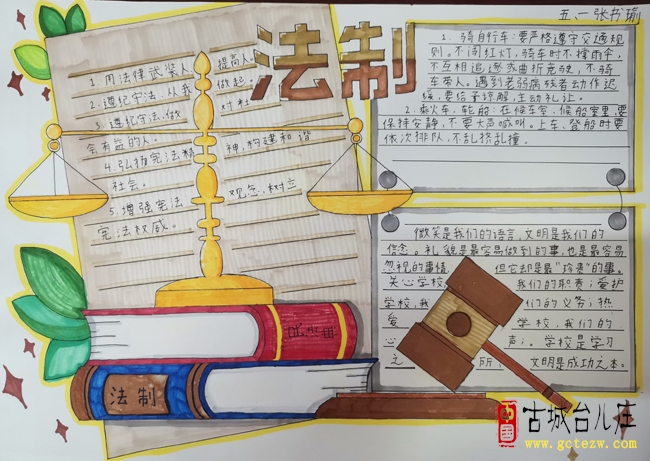 五、一 张书瑜
法制
1.用法律武装人 提高人
2.遵纪守法,从我 做起。
3.遵纪守法,做 对社
会有益的人。
4.弘扬宪法精 神,构建和谐
社会。
5.增强宪法 观念,树立
宪法权威。
1.骑自行车:要严格遵守交通规
则。不闯红灯,骑车时不撑雨伞,
不互相追逐或曲折竞驶,不骑
车带人。遇到老弱病残者动作迟
缓,要给予谅解,主动礼让。
2.乘火车、轮船:在候车室、候船室里,要
保持安静,不要大声喊叫。上车、登船时要
依次排队,不乱挤乱撞。
微笑是我们的语言,文明是我们的
信念。礼貌是最容易做到的事,也是最容易
忽视的事情, 但它却是最“珍贵”的事。
关心学校, 我们的职责;爱护
学校,我 们的义务;热
爱 学校,我们的
心 声;。学校是学习
之 所, 文明是成功之本。
法制
中国 古城台儿庄
www.gctezw.com